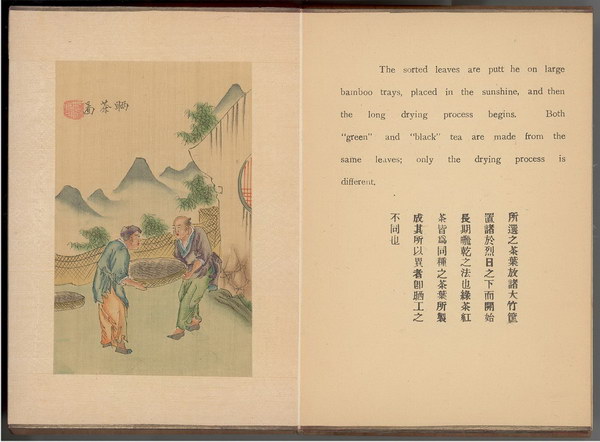 晒茶啚
The sorted leaves are putt he on large
bamboo trays, placed in the sunshine, and then
the long drying process begins. Both
"green" and "black" tea are made from the
same leaves; only the drying process is
different.
所選之茶葉放諸大竹筐
置諸於烈日之下而開始
長期曬乾之法也綠茶紅
茶皆爲同種之茶葉所製
成其所以異者卽晒工之
不同也